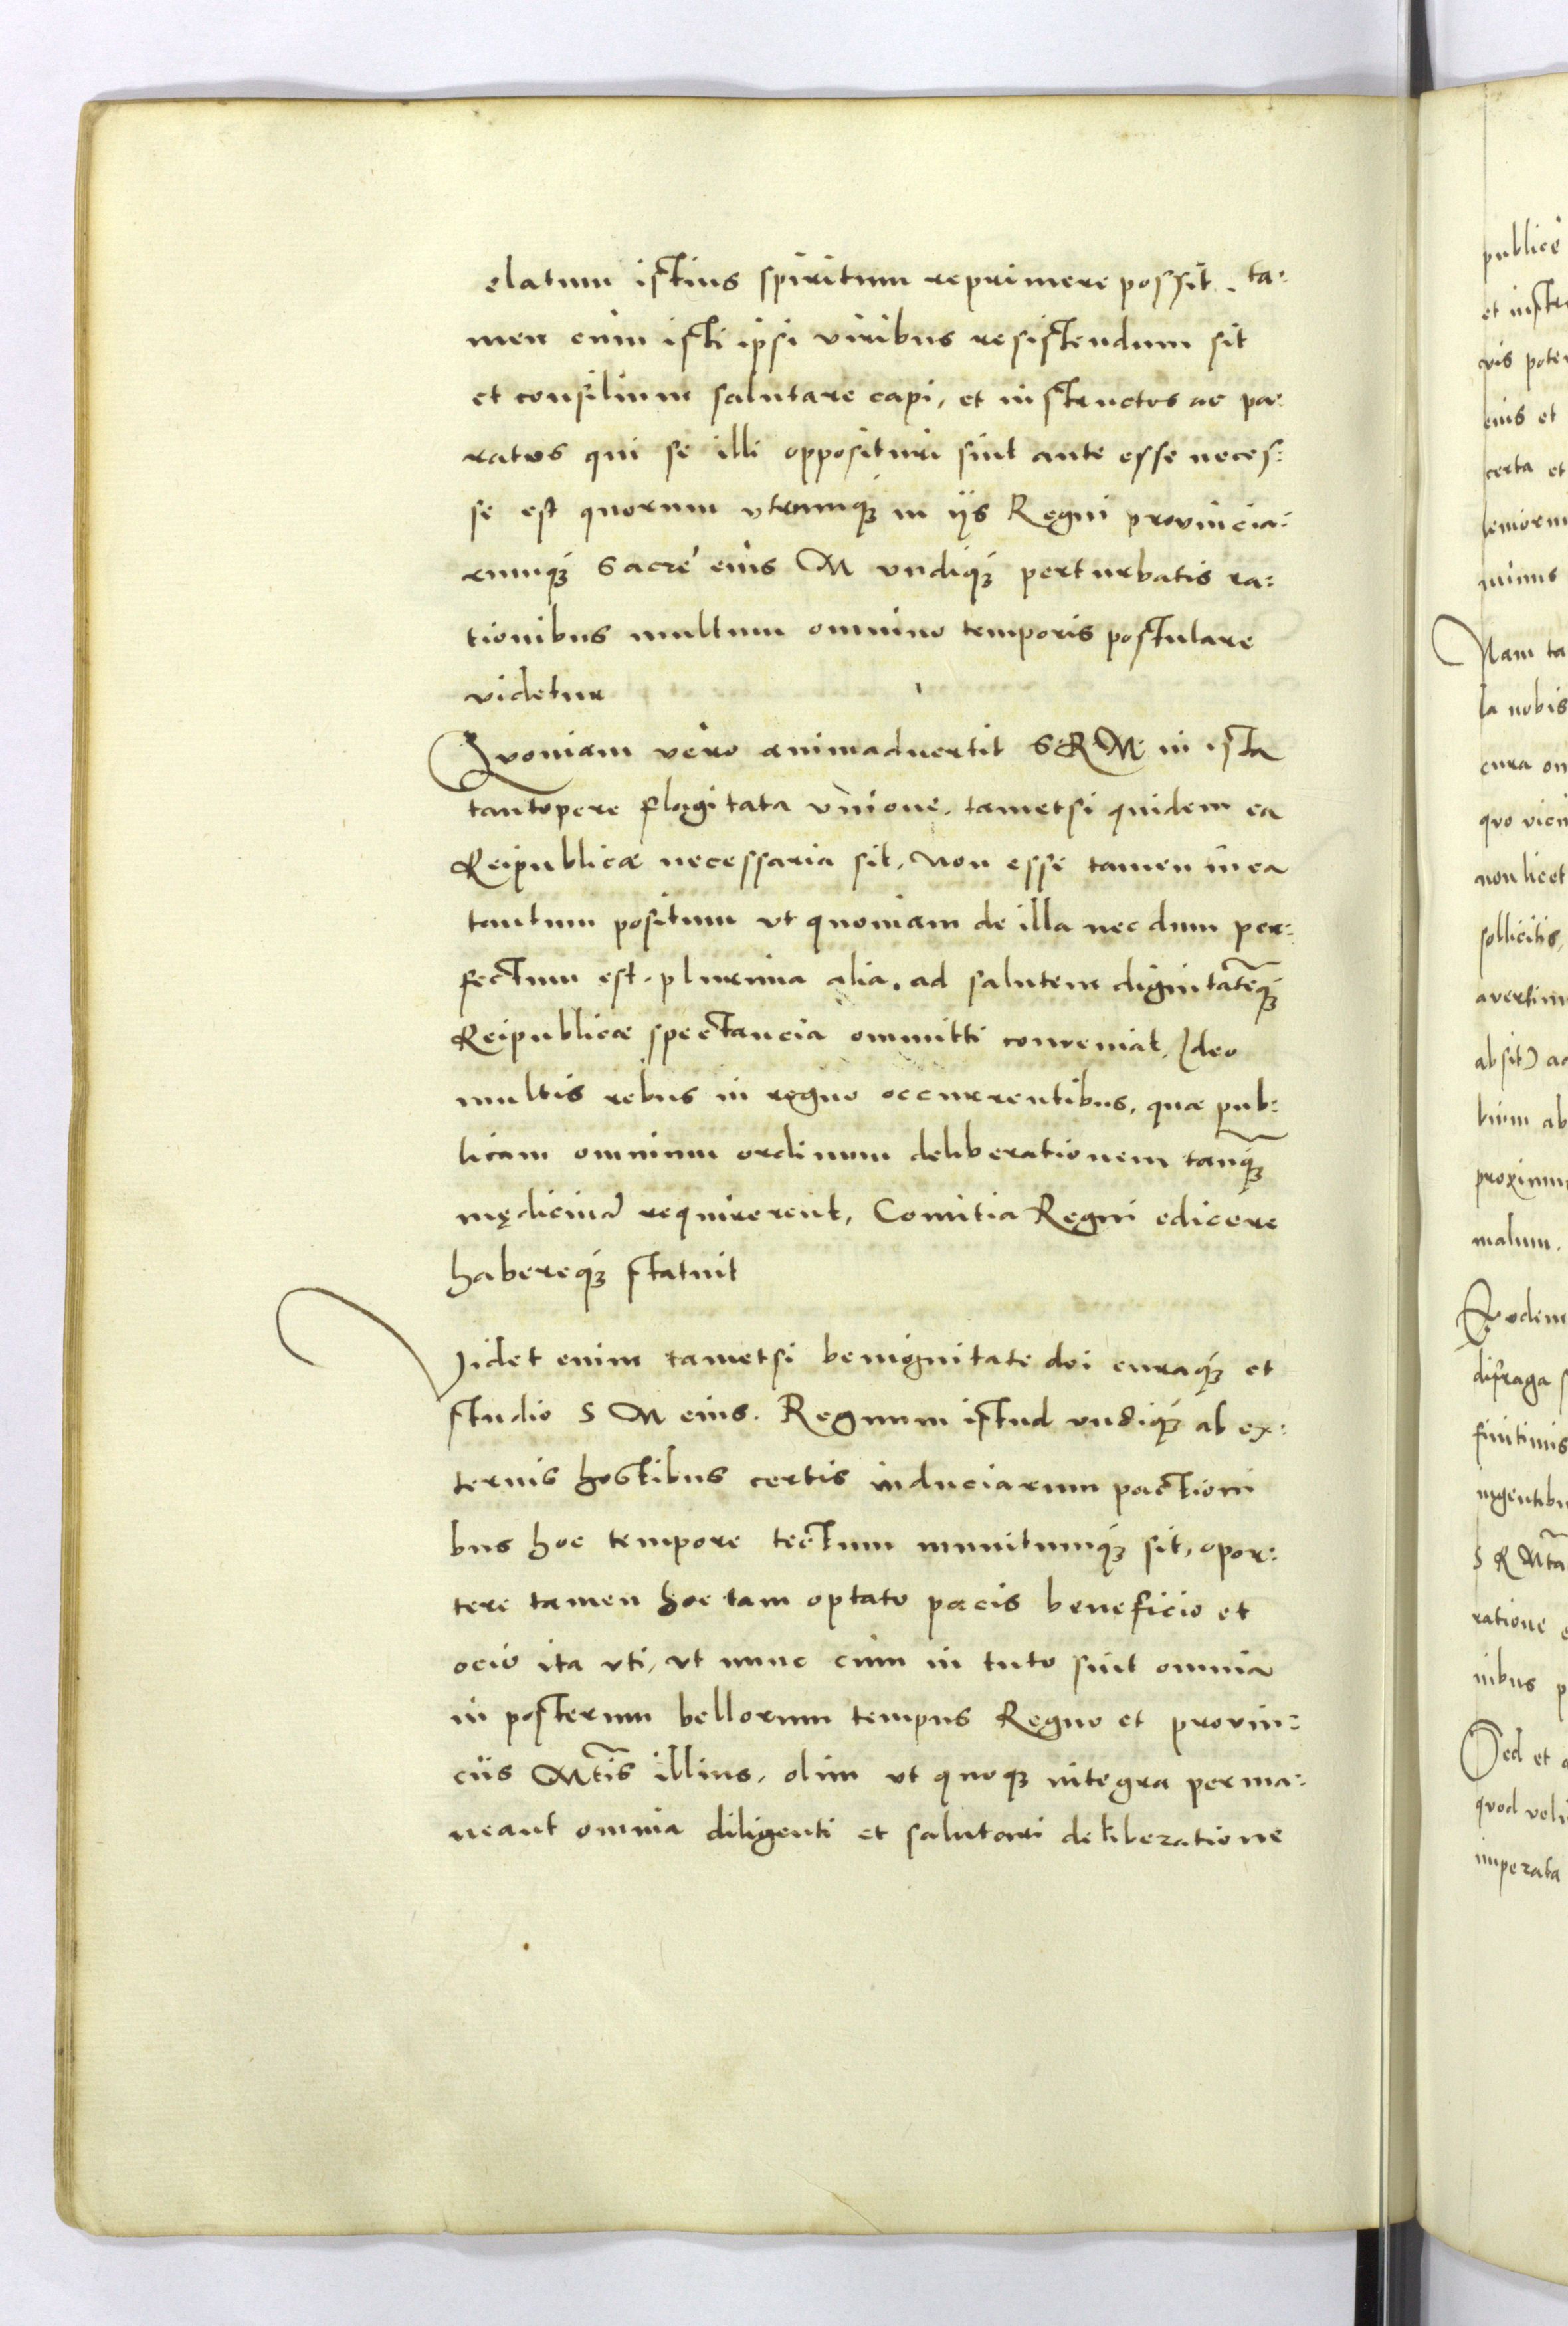 elatum istius spiritum reprimere possit. ta:
men cum isti ipsi viribus resistendum sit
et consilium salutare capi, et instructos ac pa:
ratos qui se illi opposituri sint ante esse neces:
se est quorum vtrumq₃ in ijs Regni provincia:
rumq₃ Sacre eius M vndiq₃ perturbatis ra:
tionibus multum omnino temporis postulare
videtur
Qvoniam vero animaduertit S R M in ista
tantopere flagitata vnione, tametsi quidem ea
Reipublicæ necessaria sit, non esse tamen in ea
tantum positum vt quoniam de illa nec dum per:
fectum est, plurima alia, ad salutem dignitatẽq₃
Reipublicæ spectancia ommitti conveniat, Ideo
multis rebus in regno occurrentibus, quæ pub:
licam omnium ordinum deliberationem tanq̃₃
mędicinã requirerent, Comitia Regni edicere
habereq₃ statuit
Videt enim tametsi benignitate dei curaq₃ et
studio S M eius. Regnum istud vndiq₃ ab ex:
ternis hostibus certis induciarum pactioni
bus hoc tempore tectum munitumq₃ sit, opor:
tere tamen hoc tam optato pacis beneficio et
ocio ita vti, vt nunc cum in tuto sint omnia
in posterum bellorum tempus Regno et provin:
ciis Mt̃is illius, olim vt quoq₃ integra perma:
neant omnia diligenti et salutari deliberatione
publice
et
vis
eius et
certa et
minus
Nam ta
la nobis
cura
quo
non licet
sollicitis,
absit)
malum.
finitimis
S R Mtã
ratione
nibus
Sed et
quod
imperata